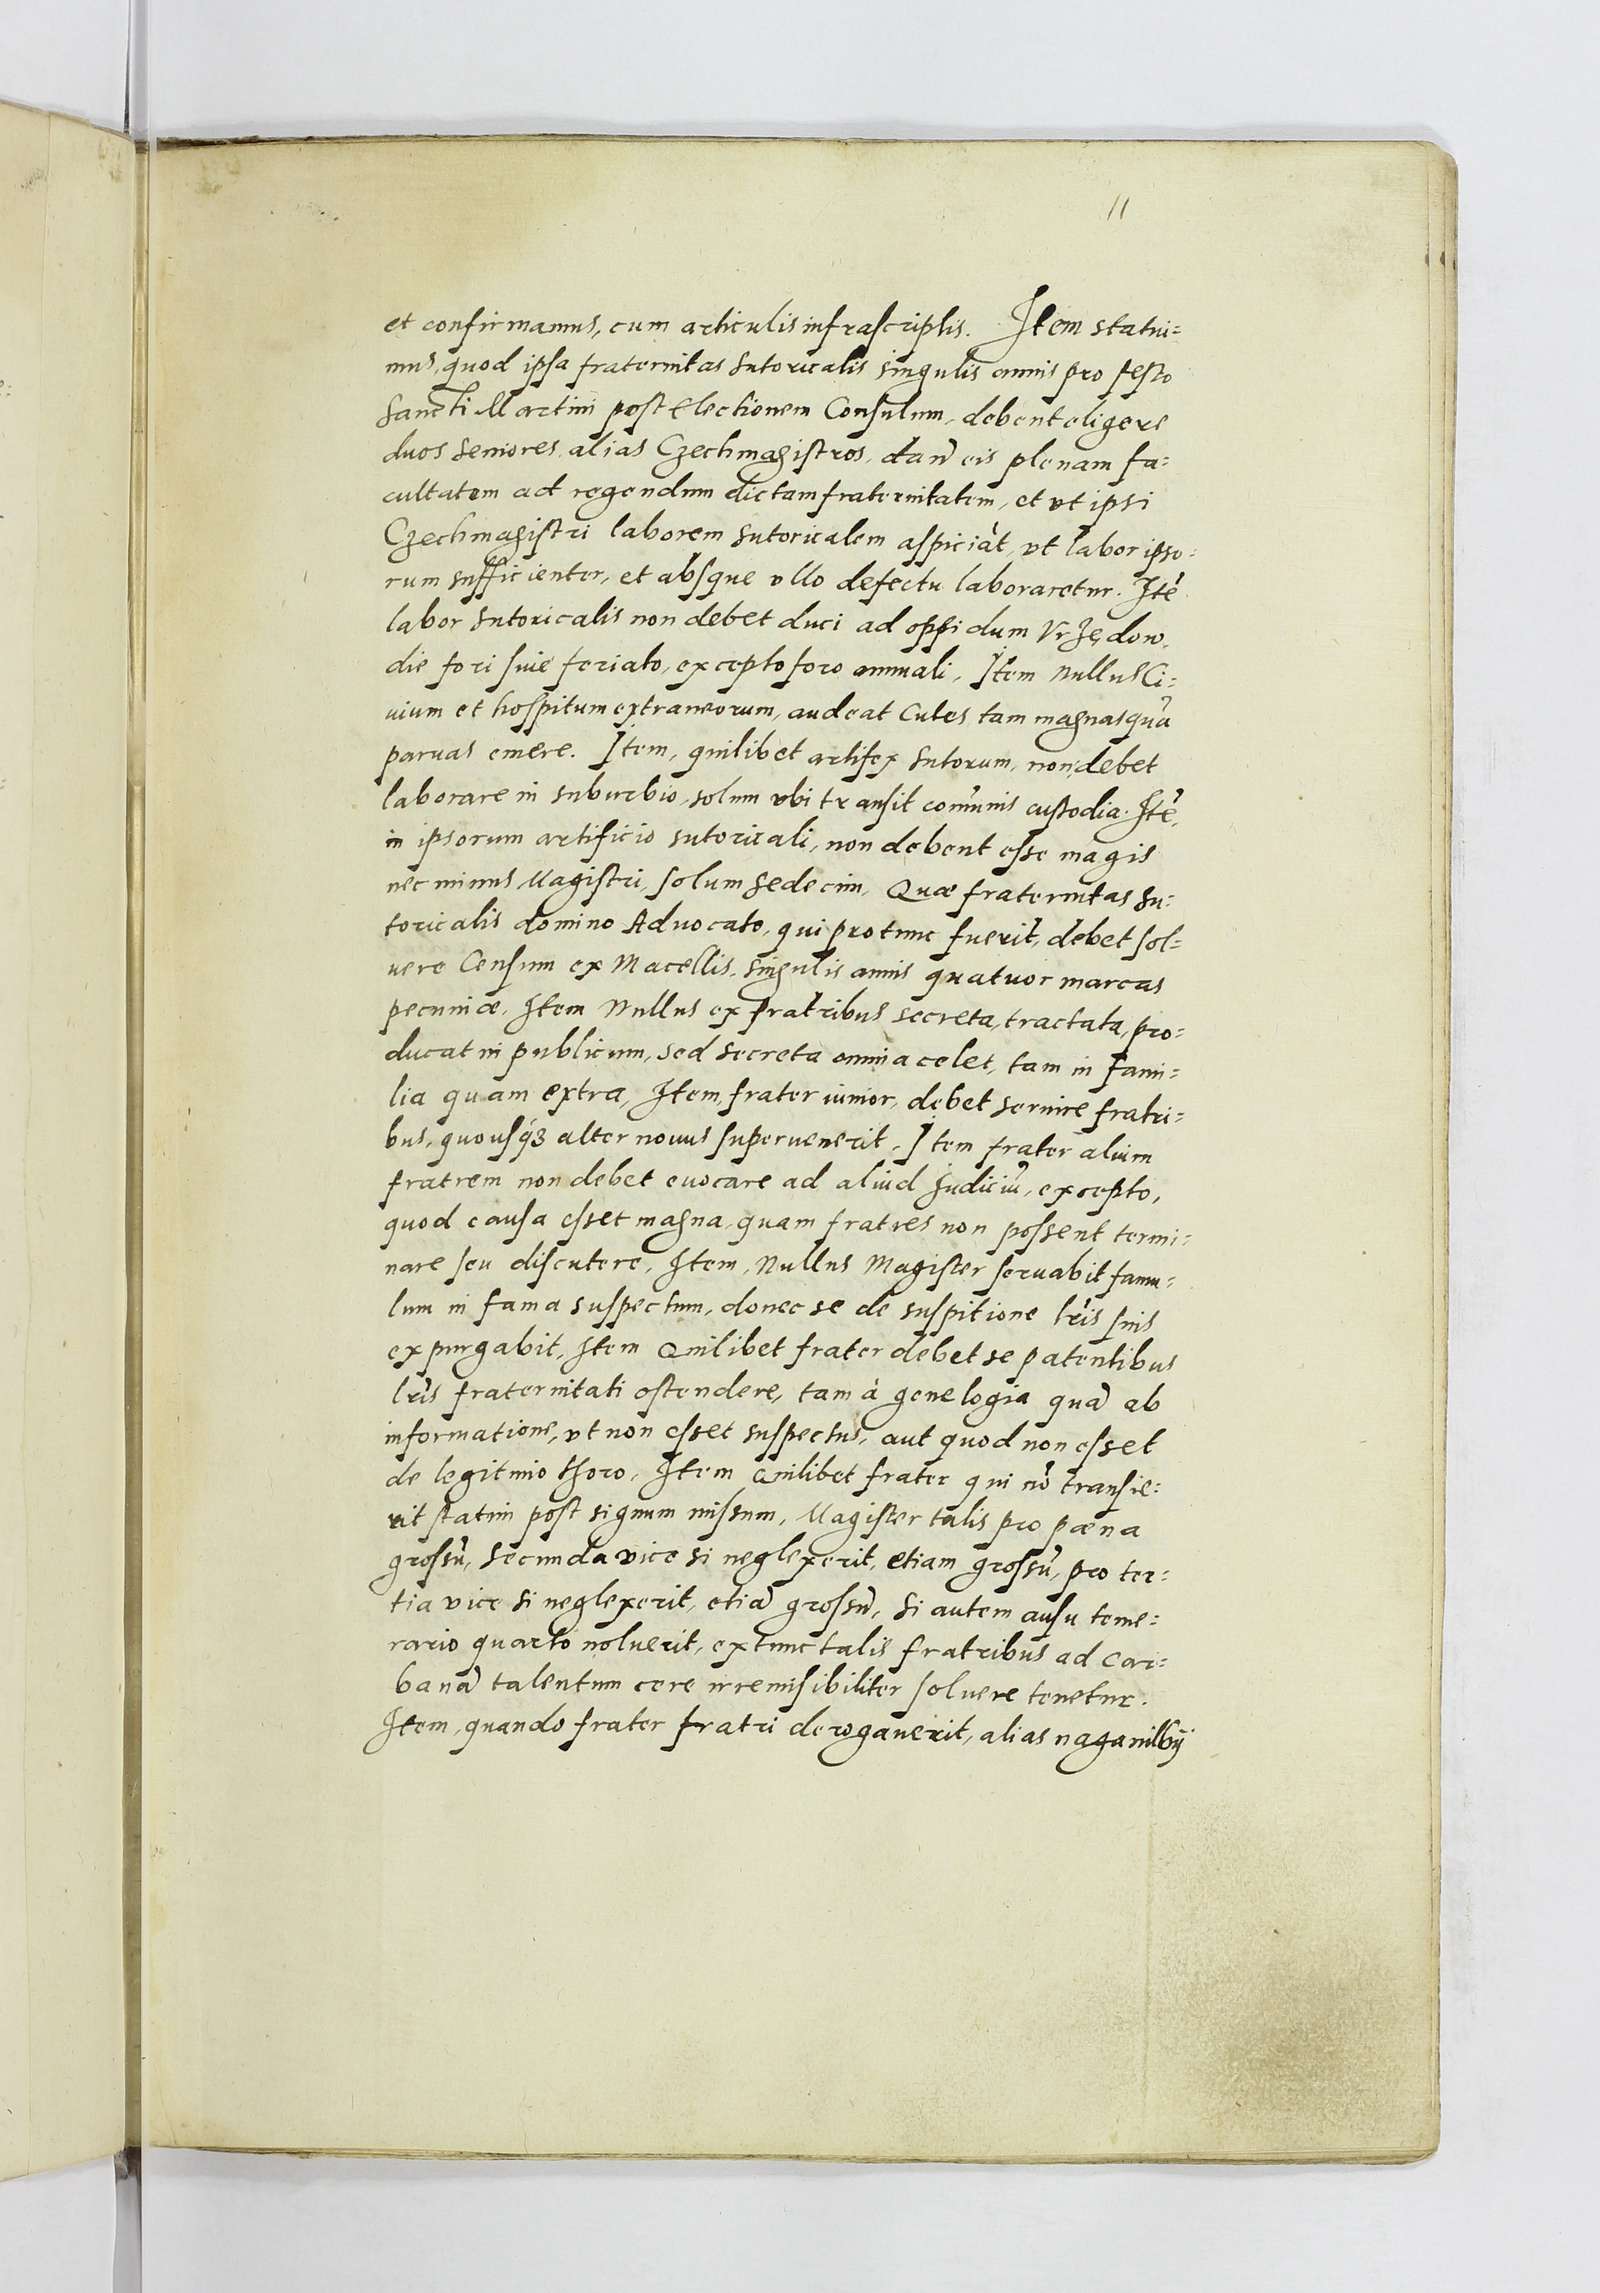 11
et confirmamus, cum articulis infrascriptis. Item statui=
mus, quod ipsa fraternitas sutoricalis singulis annis pro festo
Sancti Martini post Electionem Consulum, debent eligere
duos seniores, alias Czechmagistros, dan̄ eis plenam fa=
cultatem ad regendum dictam fraternitatem, et vt ipsi
Czechmagistri laborem sutoricalem aspiciāt, vt labor ipso=
rum sufficienter, et absque vllo defectu laboraretur. Itē
labor sutoricalis non debet duci ad oppidum Vrzędow,
die fori siue feriato, excepto foro annuali, Item Nullus Ci=
uium et hospitum extraneorum, audeat Cutes tam magnas quā
paruas emere. Item, quilibet artifex sutorum, non debet
laborare in suburbio, solum vbi transit com̄unis custodia. Itē,
in ipsorum artificio sutoricali, non debent esse magis
nec minus Magistri, solum sedecim, Quæ fraternitas su=
toricalis domino Aduocato, qui protunc fuerit, debet sol=
uere Censum ex Macellis, singulis annis quatuor marcas
pecuniæ, Item Nullus ex fratribus secreta, tractata, pro=
ducat in publicum, sed secreta omnia celet, tam in fami=
lia quam extra, Item, frater iunior, debet seruire fratri=
bus, quousq́3 alter nouus superuenerit, Item frater alium
fratrem non debet euocare ad aliud Judiciū, excepto,
quod causa esset magna, quam fratres non possent termi=
nare seu discutere, Item, Nullus Magister seruabit famu=
lum in fama suspectum, donec se de suspitione lr̄is suis
expurgabit, Item Quilibet frater debet se patentibus
lr̄is fraternitati ostendere, tam à genelogia quā ab
informatione, vt non esset suspectus, aut quod non esset
de legitimo thoro, Item Quilibet frater qui nō transie=
rit statim post signum missum, Magister talis pro pæna
grossū, secunda vice si neglexerit, etiam grossū, pro ter=
tia vice si neglexerit, etiā grossū, si autem ausu teme=
rario quarto noluerit, extunc talis fratribus ad car=
banā talentum cere irremisibiliter soluere tenetur.
Item, quando frater fratri derogauerit, alias naganilbÿ